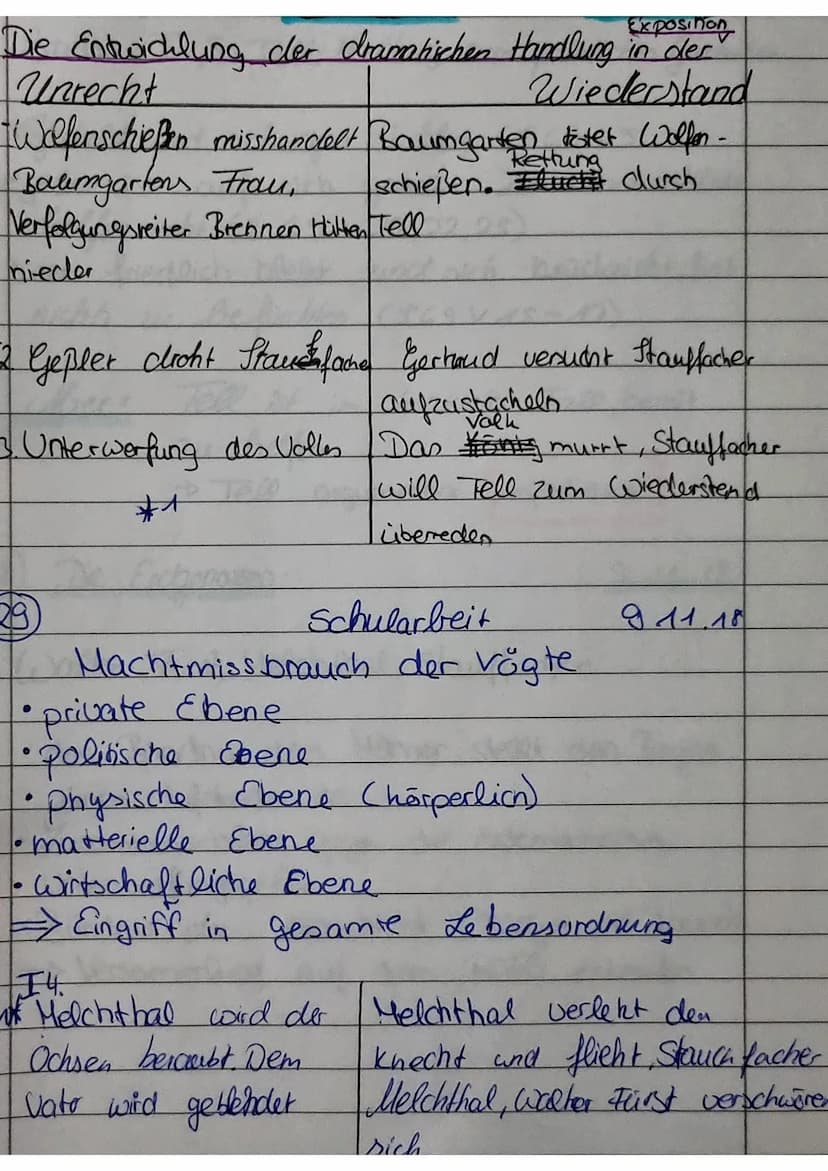 Exposition
Die Entwicklung der dramatichen Handlung in der
Unrecht
Wiederstand
1 Wolfenschießen misshandelt
Baumgartens Frau,
Verfolgungsreiter Brennen Hütten
nieder
Baumgarten tötet Wolfen-
schießen. Rettung durch
Tell
2 Geßler droht Stauffacher
Gertrud versucht Stauffacher
aufzustacheln
3. Unterwerfung des Volkes
*1
Das Volk murrt, Stauffacher
will Tell zum Wiederstand
überreden
29 Schularbeit 9 11.18
Machtmissbrauch der Vögte
• private Ebene
• politische Ebene
• physische Ebene (körperlich)
• matterielle Ebene
• wirtschaftliche Ebene
⇒ Eingriff in gesamte Lebensordnung
I4.
Melchthal wird der
Ochsen beraubt. Dem
Vater wird geblendet
Melchthal verletzt den
Knecht und flieht, Stauffacher
Melchthal, Walter Fürst verschwören
sich